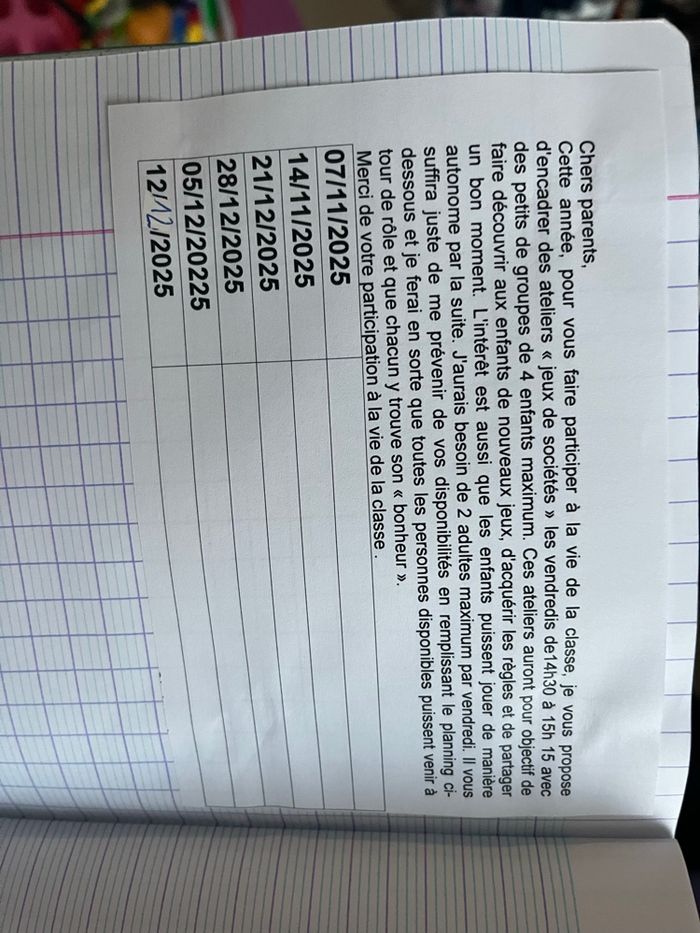 Chers parents,
Cette année, pour vous faire participer à la vie de la classe, je vous propose
d'encadrer des ateliers « jeux de sociétés » les vendredis de14h30 à 15h 15 avec
des petits de groupes de 4 enfants maximum. Ces ateliers auront pour objectif de
faire découvrir aux enfants de nouveaux jeux, d'acquérir les règles et de partager
un bon moment. L'intérêt est aussi que les enfants puissent jouer de manière
autonome par la suite. J'aurais besoin de 2 adultes maximum par vendredi. Il vous
suffira juste de me prévenir de vos disponibilités en remplissant le planning ci-
dessous et je ferai en sorte que toutes les personnes disponibles puissent venir à
tour de rôle et que chacun y trouve son « bonheur ».
Merci de votre participation à la vie de la classe .
07/11/2025
14/11/2025
21/12/2025
28/12/2025
05/12/20225
12/12/2025